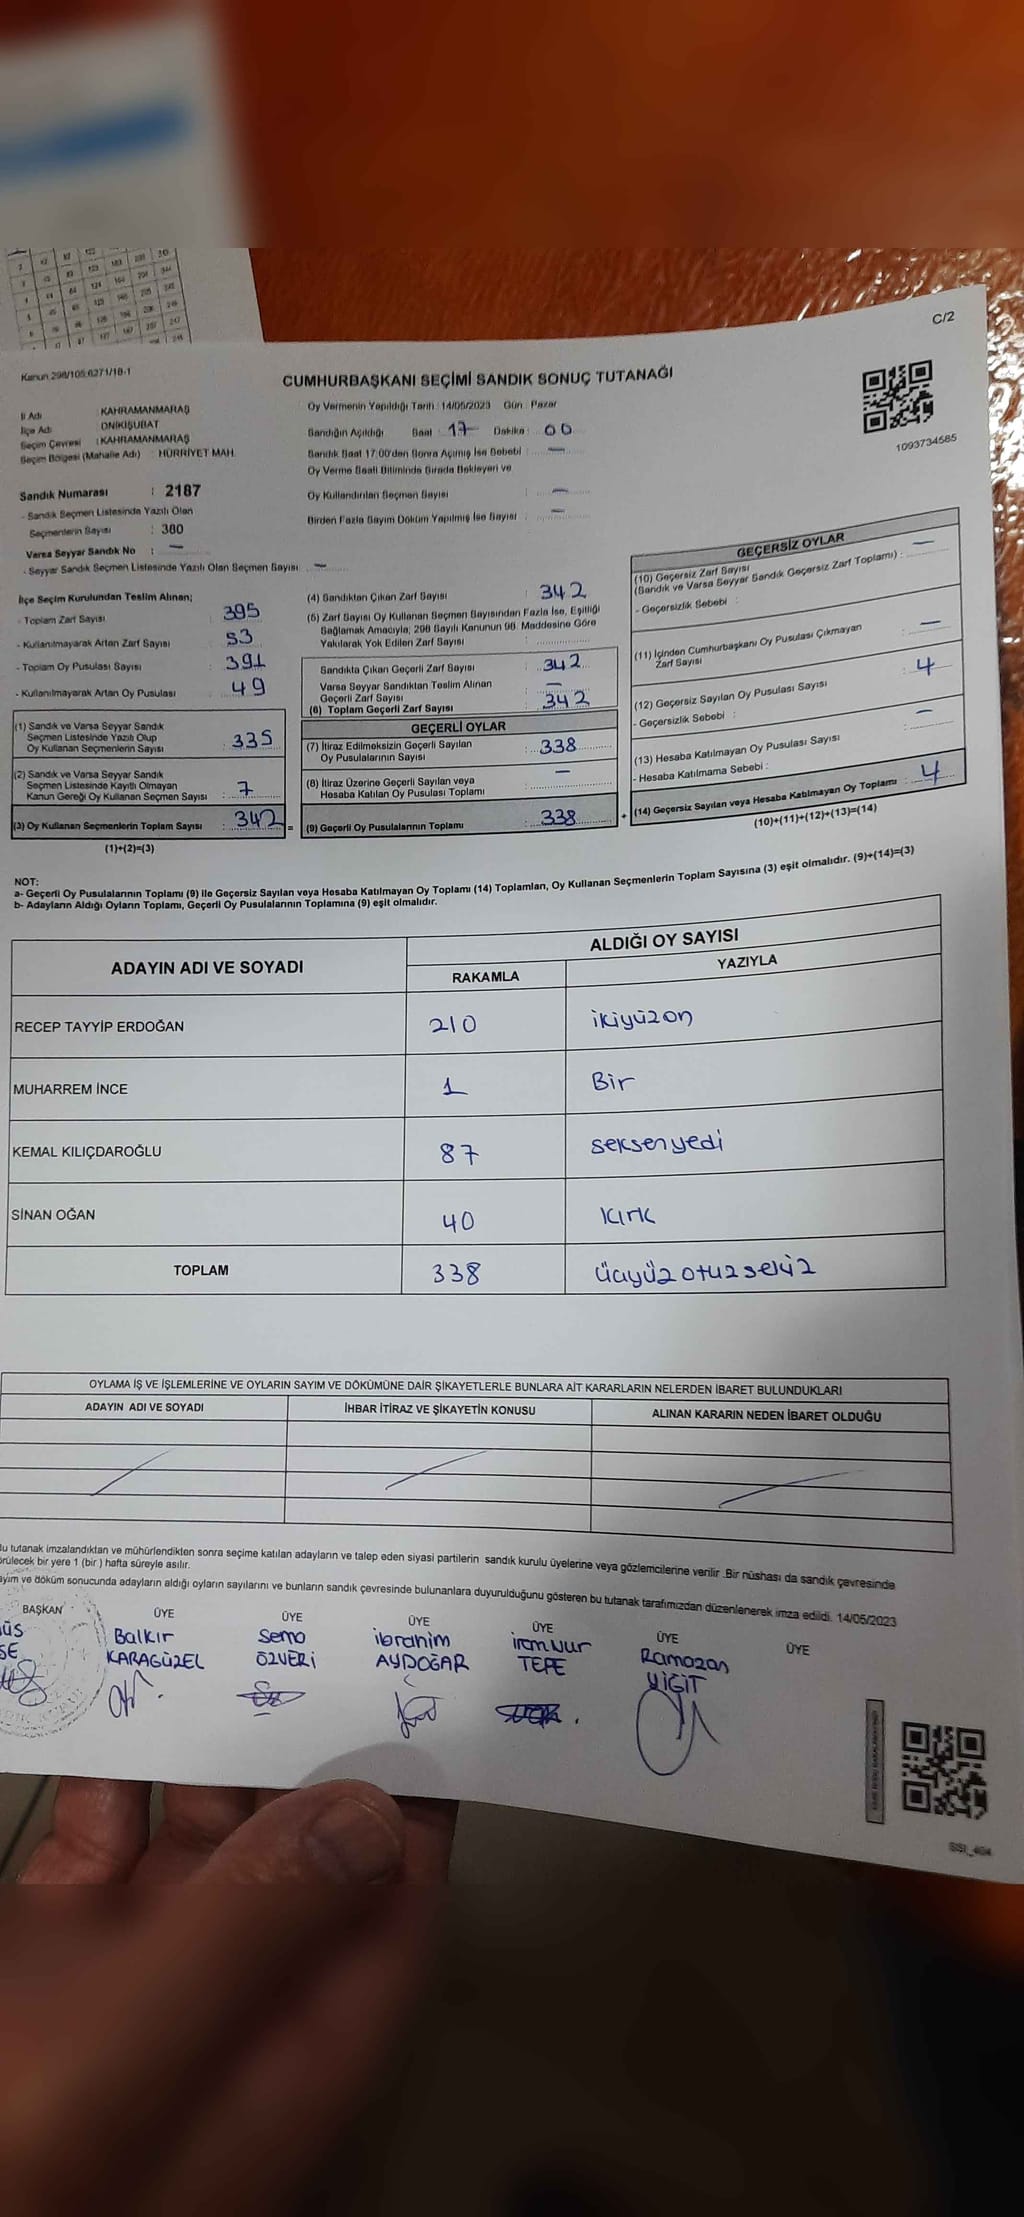 C/2
Kanun 298/105;6271/18-1
CUMHURBAŞKANI SEÇİMİ SANDIK SONUÇ TUTANAĞI
1093734585
İl Adı : KAHRAMANMARAŞ
İlçe Adı : ONİKİŞUBAT
Seçim Çevresi : KAHRAMANMARAŞ
Seçim Bölgesi (Mahalle Adı) : HÜRRİYET MAH.
Sandık Numarası : 2187
- Sandık Seçmen Listesinde Yazılı Olan
Seçmenlerin Sayısı : 380
Varsa Seyyar Sandık No : —
- Seyyar Sandık Seçmen Listesinde Yazılı Olan Seçmen Sayısı : —
Oy Vermenin Yapıldığı Tarih : 14/05/2023 Gün : Pazar
Sandığın Açıldığı Saat : 17 Dakika : 00
Sandık Saat 17:00'den Sonra Açılmış İse Sebebi : —
Oy Verme Saati Bitiminde Sırada Bekleyen ve
Oy Kullandırılan Seçmen Sayısı : —
Birden Fazla Sayım Döküm Yapılmış İse Sayısı : —
İlçe Seçim Kurulundan Teslim Alınan;
- Toplam Zarf Sayısı : 395
- Kullanılmayarak Artan Zarf Sayısı : 53
- Toplam Oy Pusulası Sayısı : 391
- Kullanılmayarak Artan Oy Pusulası : 49
(1) Sandık ve Varsa Seyyar Sandık
Seçmen Listesinde Yazılı Olup
Oy Kullanan Seçmenlerin Sayısı : 335
(2) Sandık ve Varsa Seyyar Sandık
Seçmen Listesinde Kayıtlı Olmayan
Kanun Gereği Oy Kullanan Seçmen Sayısı : 7
(3) Oy Kullanan Seçmenlerin Toplam Sayısı : 342 =
(1)+(2)=(3)
(4) Sandıktan Çıkan Zarf Sayısı : 342
(5) Zarf Sayısı Oy Kullanan Seçmen Sayısından Fazla İse, Eşitliği
Sağlamak Amacıyla; 298 Sayılı Kanunun 98. Maddesine Göre
Yakılarak Yok Edilen Zarf Sayısı :
Sandıkta Çıkan Geçerli Zarf Sayısı : 342
Varsa Seyyar Sandıktan Teslim Alınan
Geçerli Zarf Sayısı : —
(6) Toplam Geçerli Zarf Sayısı : 342
GEÇERLİ OYLAR
(7) İtiraz Edilmeksizin Geçerli Sayılan
Oy Pusulalarının Sayısı : 338
(8) İtiraz Üzerine Geçerli Sayılan veya
Hesaba Katılan Oy Pusulası Toplamı : —
(9) Geçerli Oy Pusulalarının Toplamı : 338 +
GEÇERSİZ OYLAR
(10) Geçersiz Zarf Sayısı
(Sandık ve Varsa Seyyar Sandık Geçersiz Zarf Toplamı) : —
- Geçersizlik Sebebi :
(11) İçinden Cumhurbaşkanı Oy Pusulası Çıkmayan
Zarf Sayısı : —
(12) Geçersiz Sayılan Oy Pusulası Sayısı : 4
- Geçersizlik Sebebi :
(13) Hesaba Katılmayan Oy Pusulası Sayısı : —
- Hesaba Katılmama Sebebi :
(14) Geçersiz Sayılan veya Hesaba Katılmayan Oy Toplamı : 4
(10)+(11)+(12)+(13)=(14)
NOT:
a- Geçerli Oy Pusulalarının Toplamı (9) ile Geçersiz Sayılan veya Hesaba Katılmayan Oy Toplamı (14) Toplamları, Oy Kullanan Seçmenlerin Toplam Sayısına (3) eşit olmalıdır. (9)+(14)=(3)
b- Adayların Aldığı Oyların Toplamı, Geçerli Oy Pusulalarının Toplamına (9) eşit olmalıdır.
ADAYIN ADI VE SOYADI
ALDIĞI OY SAYISI
RAKAMLA YAZIYLA
RECEP TAYYİP ERDOĞAN 210 ikiyüzon
MUHARREM İNCE 1 Bir
KEMAL KILIÇDAROĞLU 87 seksenyedi
SİNAN OĞAN 40 kırk
TOPLAM 338 üçyüzotuzsekiz
OYLAMA İŞ VE İŞLEMLERİNE VE OYLARIN SAYIM VE DÖKÜMÜNE DAİR ŞİKAYETLERLE BUNLARA AİT KARARLARIN NELERDEN İBARET BULUNDUKLARI
ADAYIN ADI VE SOYADI İHBAR İTİRAZ VE ŞİKAYETİN KONUSU ALINAN KARARIN NEDEN İBARET OLDUĞU
Bu tutanak imzalandıktan ve mühürlendikten sonra seçime katılan adayların ve talep eden siyasi partilerin sandık kurulu üyelerine veya gözlemcilerine verilir .Bir nüshası da sandık çevresinde
görülecek bir yere 1 (bir ) hafta süreyle asılır.
ayım ve döküm sonucunda adayların aldığı oyların sayılarını ve bunların sandık çevresinde bulunanlara duyurulduğunu gösteren bu tutanak tarafımızdan düzenlenerek imza edildi. 14/05/2023
BAŞKAN ÜYE ÜYE ÜYE ÜYE ÜYE ÜYE
Balkır Sema ibrahim iremnur Ramazan
KARAGÜZEL ÖZVERİ AYDOĞAR TEPE YİĞİT
SSI_404